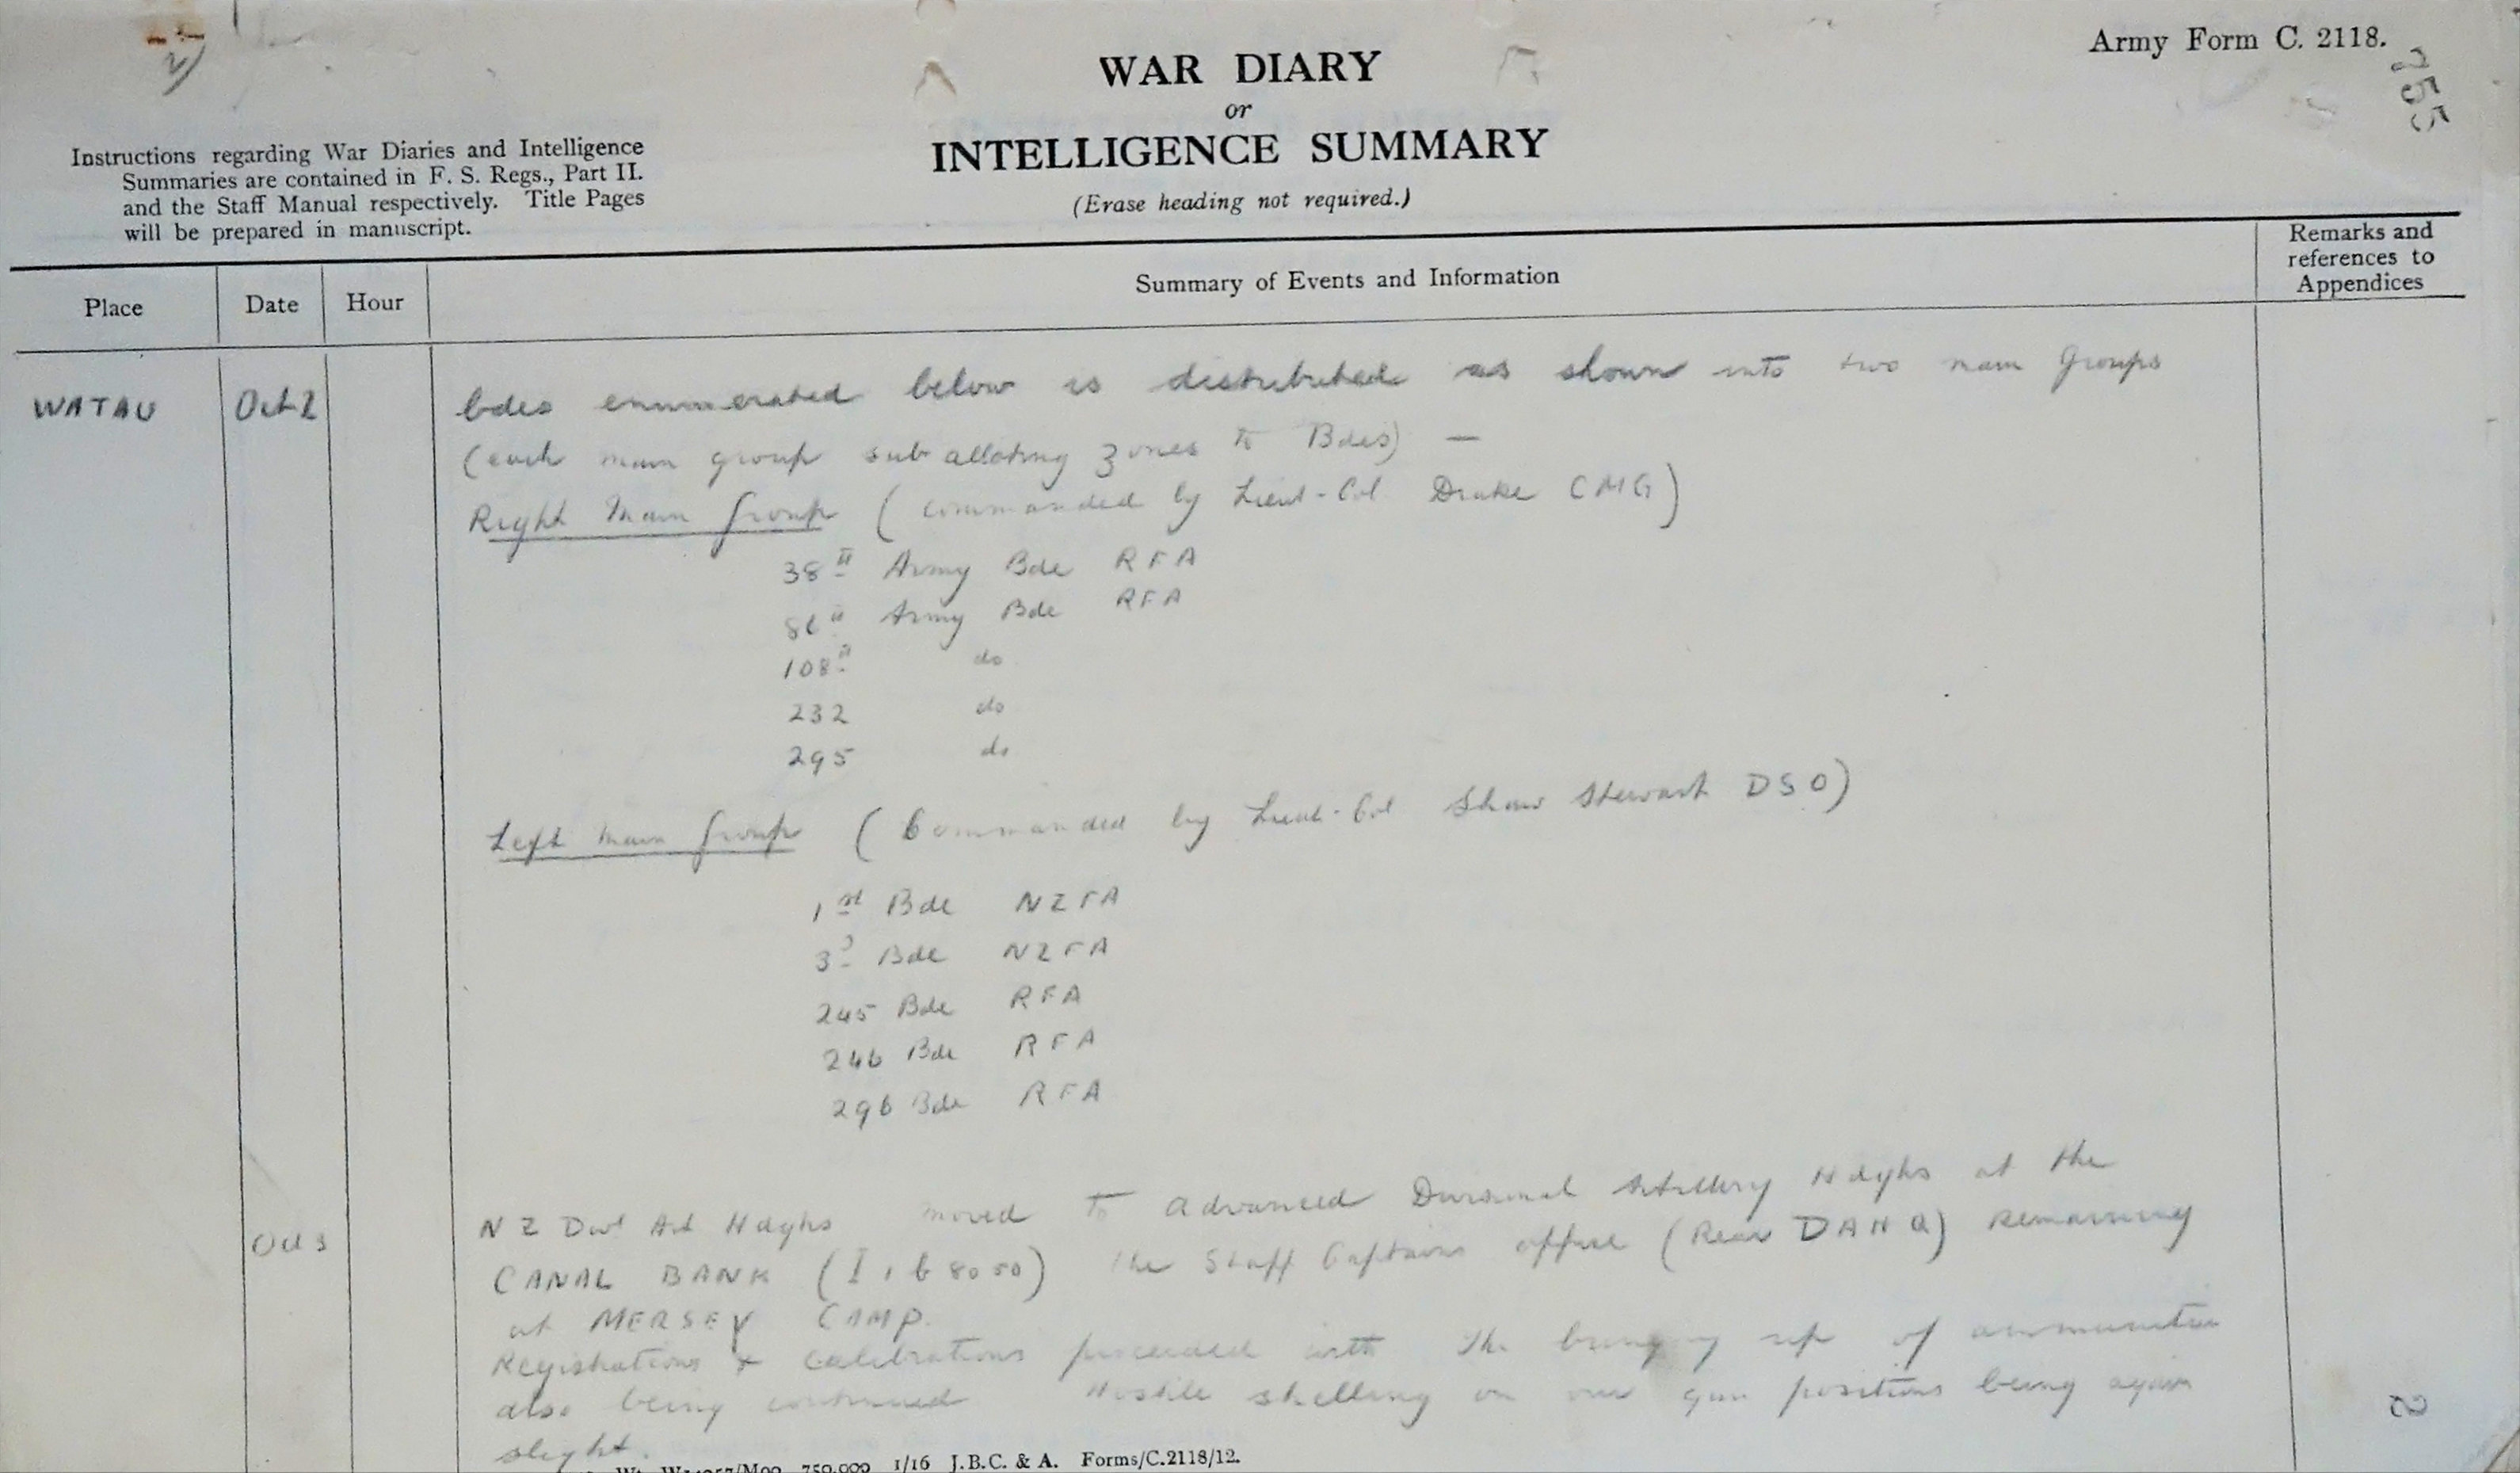 2)
Army Form C. 2118.
755
WAR DIARY
or
INTELLIGENCE SUMMARY
(Erase heading not required.)
Instructions regarding War Diaries and Intelligence
Summaries are contained in F. S. Regs., Part II.
and the Staff Manual respectively. Title Pages
will be prepared in manuscript.
Place Date Hour Summary of Events and Information Remarks and
references to
Appendices
WATAU Oct 2 bdes enumerated below is distributed as shown into two main groups
(each main group sub allotting zones to Bdes) —
Right Main Group (commanded by Lieut-Col Drake CMG)
38th Army Bde RFA
86th Army Bde RFA
108th do
232 do
295 do
Left Main Group (Commanded by Lieut-Col Shaw Stewart DSO)
1st Bde NZFA
3d Bde NZFA
245 Bde RFA
246 Bde RFA
296 Bde RFA
Oct 3 NZ Divl Art Hdqrs moved to Advanced Divisional Artillery Hdqrs at the
CANAL BANK (I 1 b 80 50) the Staff Captains office (Rear DAHQ) remaining
at MERSEY CAMP.
Registrations & calibrations proceeded with the bringing up of ammunition
also being continued Hostile shelling on our gun positions being again
slight.
2
750,000 1/16 J.B.C. & A. Forms/C.2118/12.